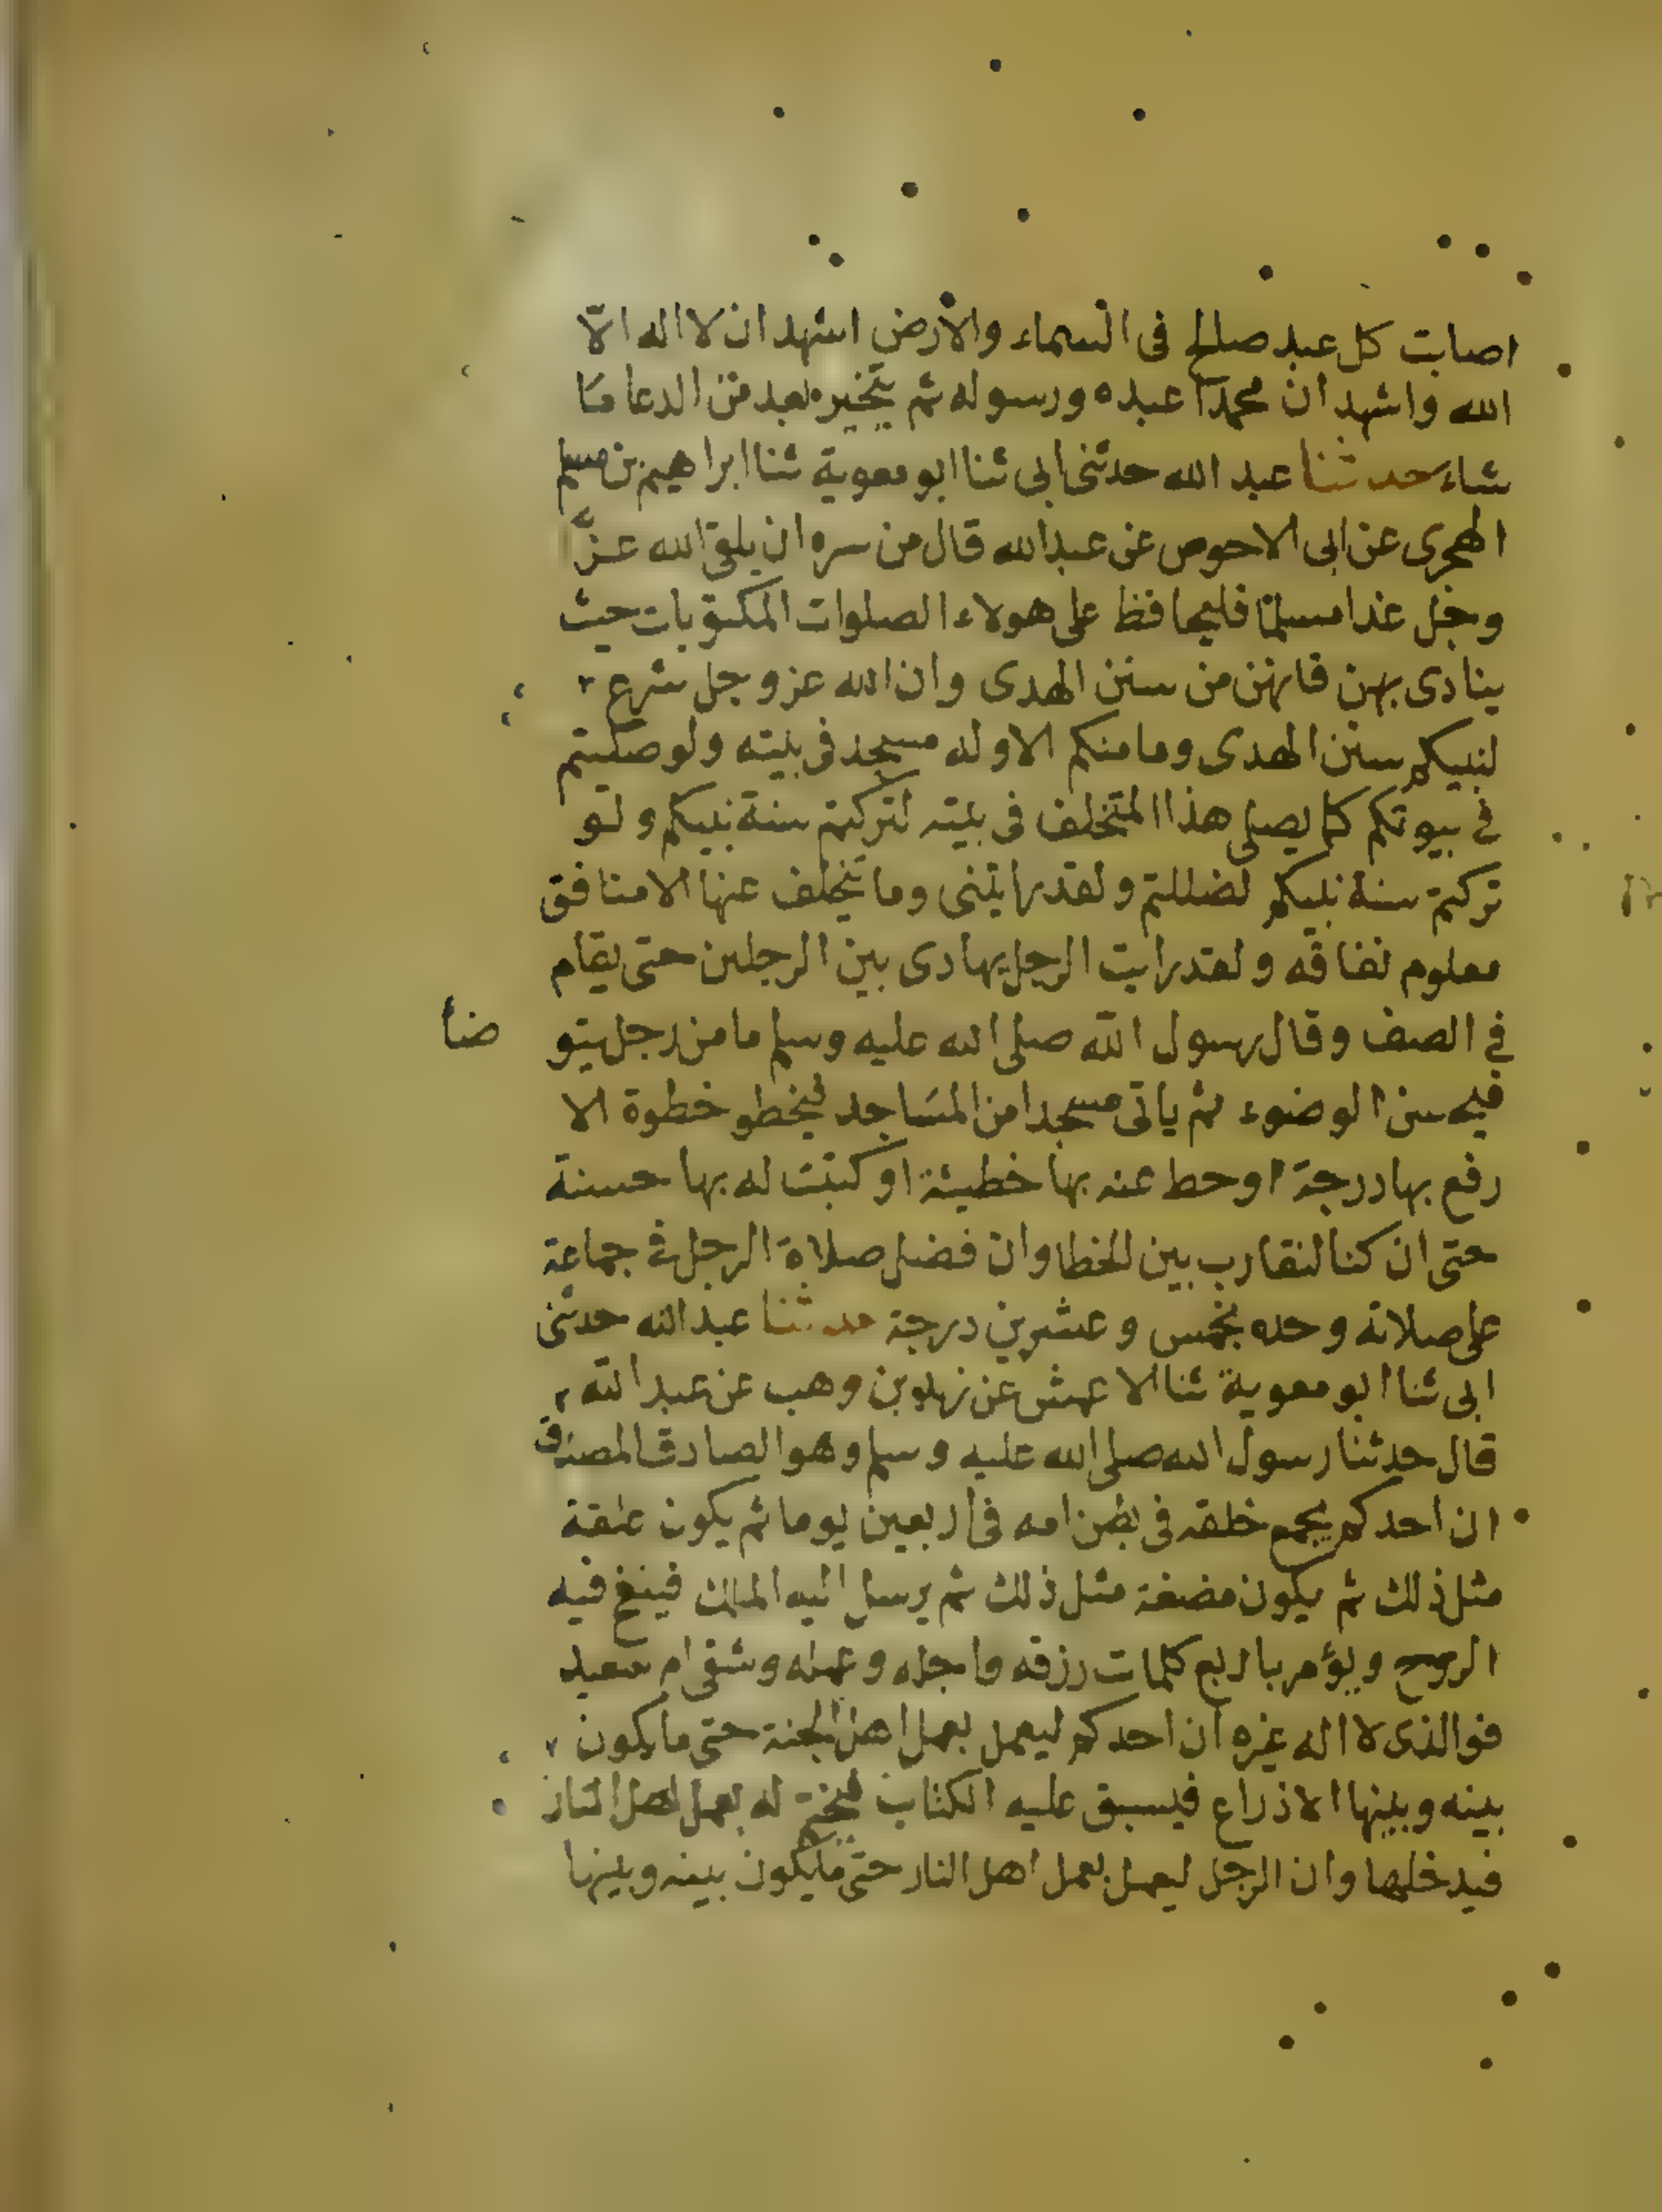 اصابت كل عبد صالح فى السماء والارض اشهد ان لا اله الّا
الله واشهد ان محمدا عبده ورسوله ثم يتخير بعد من الدعا مَا
شاء حدثنا عبد الله حدثنى ابى ثنا ابو معوية ثنا ابراهيم بن مسلم
الهجرى عن ابى الاحوص عن عبد الله قال من سره ان يلقى الله عزَّ
وجل غدا مسلمًا فليحافظ على هولاء الصلوات المكتوبات حيث
ينادى بهن فانهن من سنن الهدى وان الله عز وجل شرع
لنبيكم سنن الهدى وما منكم الا وله مسجد فى بيته ولو صليتم
فى بيوتكم كما يصلى هذا المتخلف فى بيته لتركتم سنة نبيكم ولو
تركتم سنة نبيكم لضللتم ولقد رايتنى وما يتخلف عنها الا منافق
معلوم نفاقه ولقد رايت الرجل يهادى بين الرجلين حتى يقام
فى الصف وقال رسول الله صلى الله عليه وسلم ما من رجل يتو ضأ
فيحسن الوضوء ثم ياتى مسجدا من المسَاجد فيخطو خطوة الا
رفع بها درجة اوحط عنه بها خطيئة او كتبت له بها حسنة
حتى ان كنا لنقارب بين الخطا وان فضل صلاة الرجل فى جماعة
على صلاته وحده بخمس وعشرين درجة حدثنا عبد الله حدثنى
ابى ثنا ابو معوية ثنا الاعمش عن زيد بن وهب عن عبد الله
قال حدثنا رسول الله صلى الله عليه وسلم وهو الصادق المصدق
ان احدكم يجمع خلقه فى بطن امه فى اربعين يوما ثم يكون علقة
مثل ذلك ثم يكون مضغة مثل ذلك ثم يرسل اليه الملك فينفخ فيه
الروح ويؤمر باربع كلمات رزقه واجله وعمله وشقى ام سعيد
فوالذى لا اله غيره ان احدكم ليعمل بعمل اهل الجنة حتى ما يكون
بينه وبينها الا ذراع فيسبق عليه الكتاب فيختم له بعمل اهل النار
فيدخلها وان الرجل ليعمل بعمل اهل النار حتى ما يكون بينه وبينها